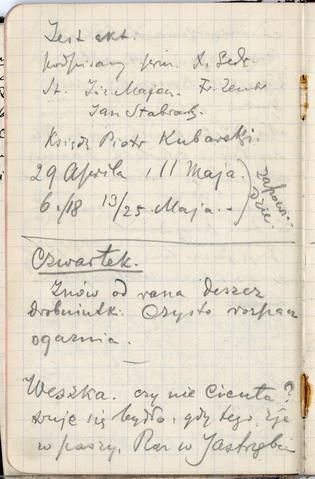 Jest akt.
podpisany przez X. Sedz.
St. Jir Majan. Fr. Zent
Jan Stabrod.
Ksiądz Piotr Kubarski.
29 Aprila, 11 Maja.
6/18 13/25 Maja.
zapowie-
dzie.
Czwartek.
Znów od rana deszcz
drobniutki. Czysto rozpacz
ogarnia.
Weszka. czy nie Cicuta?
truje się bydło, gdy tego zje
w paszy. Raz w Jastrzębiu